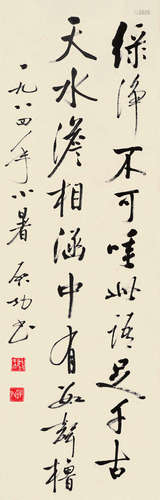 绿净不可唾此语足千古
天水澹相涵中有数声橹
一九八四年小暑 启功书